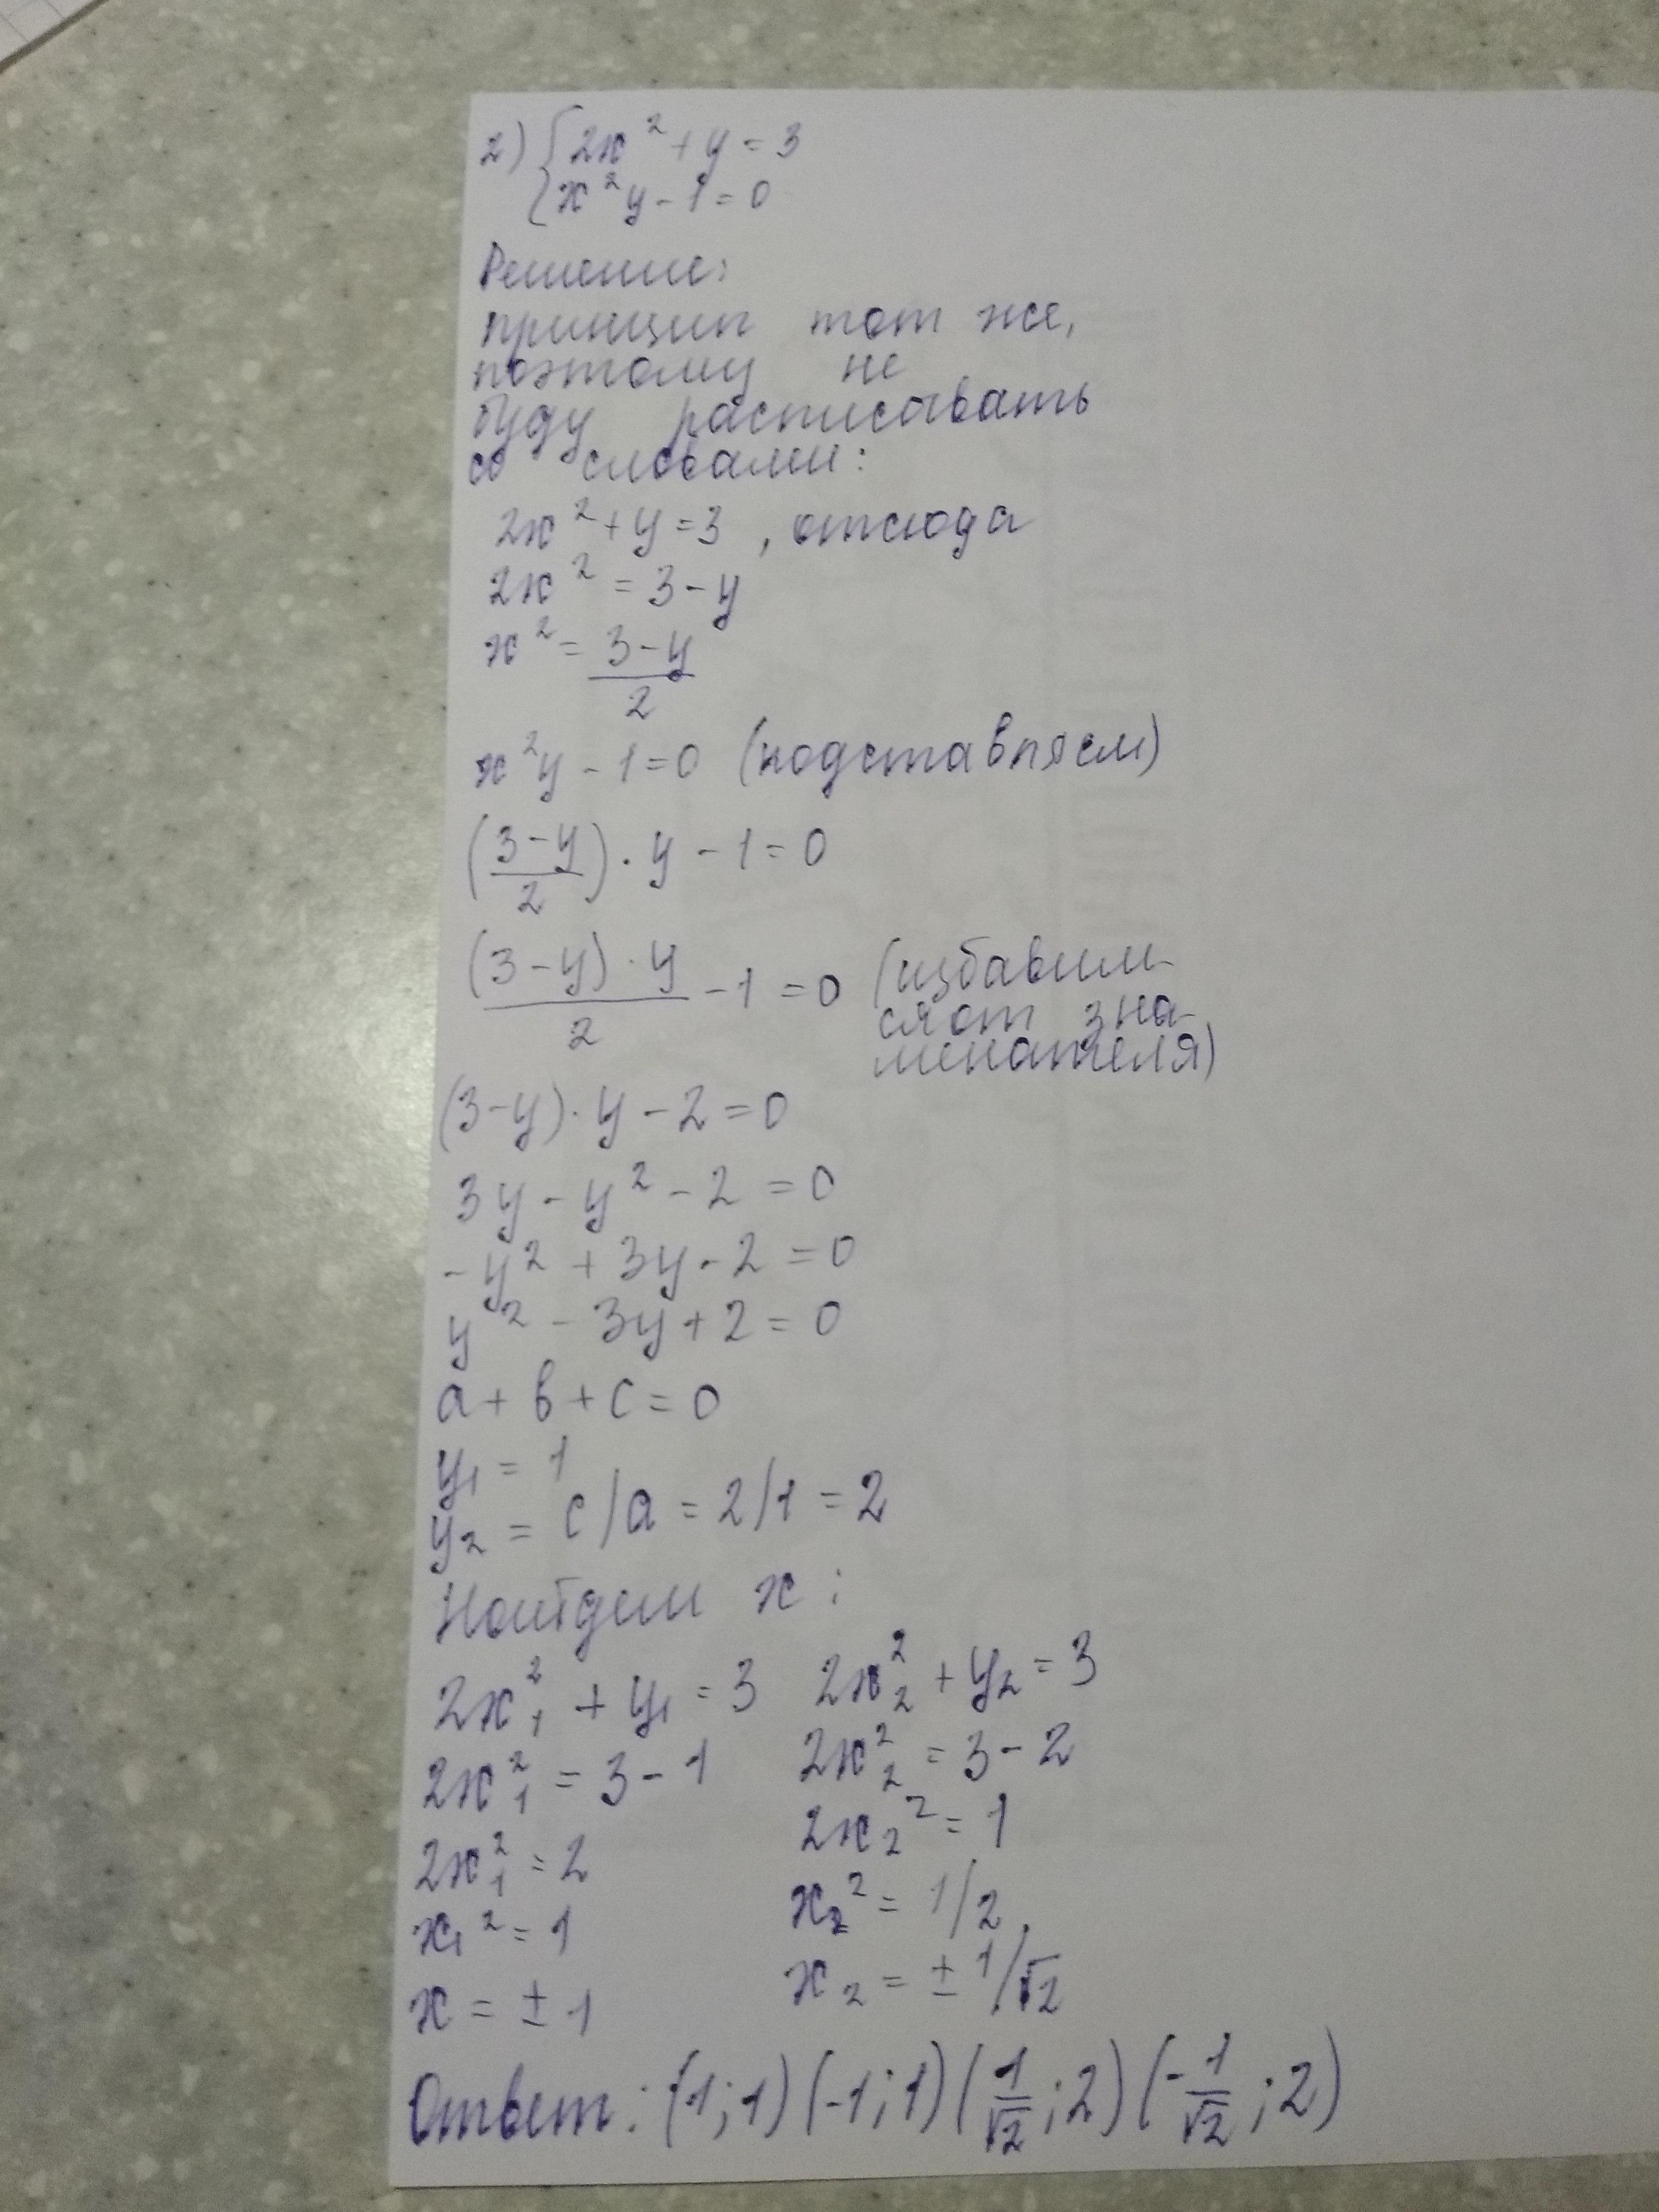 2) { 2x² + y = 3
{ x²y - 1 = 0
Решение:
принцип тот же,
поэтому не
буду расписывать
со словами:
2x² + y = 3 , отсюда
2x² = 3 - y
x² = (3 - y)/2
x²y - 1 = 0 (подставляем)
((3 - y)/2) · y - 1 = 0
((3 - y) · y)/2 - 1 = 0 (избавим-
ся от зна-
менателя)
(3 - y) · y - 2 = 0
3y - y² - 2 = 0
- y² + 3y - 2 = 0
y² - 3y + 2 = 0
a + b + c = 0
y₁ = 1
y₂ = c/a = 2/1 = 2
Найдем x:
2x₁² + y₁ = 3 2x₂² + y₂ = 3
2x₁² = 3 - 1 2x₂² = 3 - 2
2x₁² = 2 2x₂² = 1
x₁² = 1 x₂² = 1/2
x = ± 1 x₂ = ± 1/√2
Ответ: (1; 1) (-1; 1) (1/√2; 2) (-1/√2; 2)